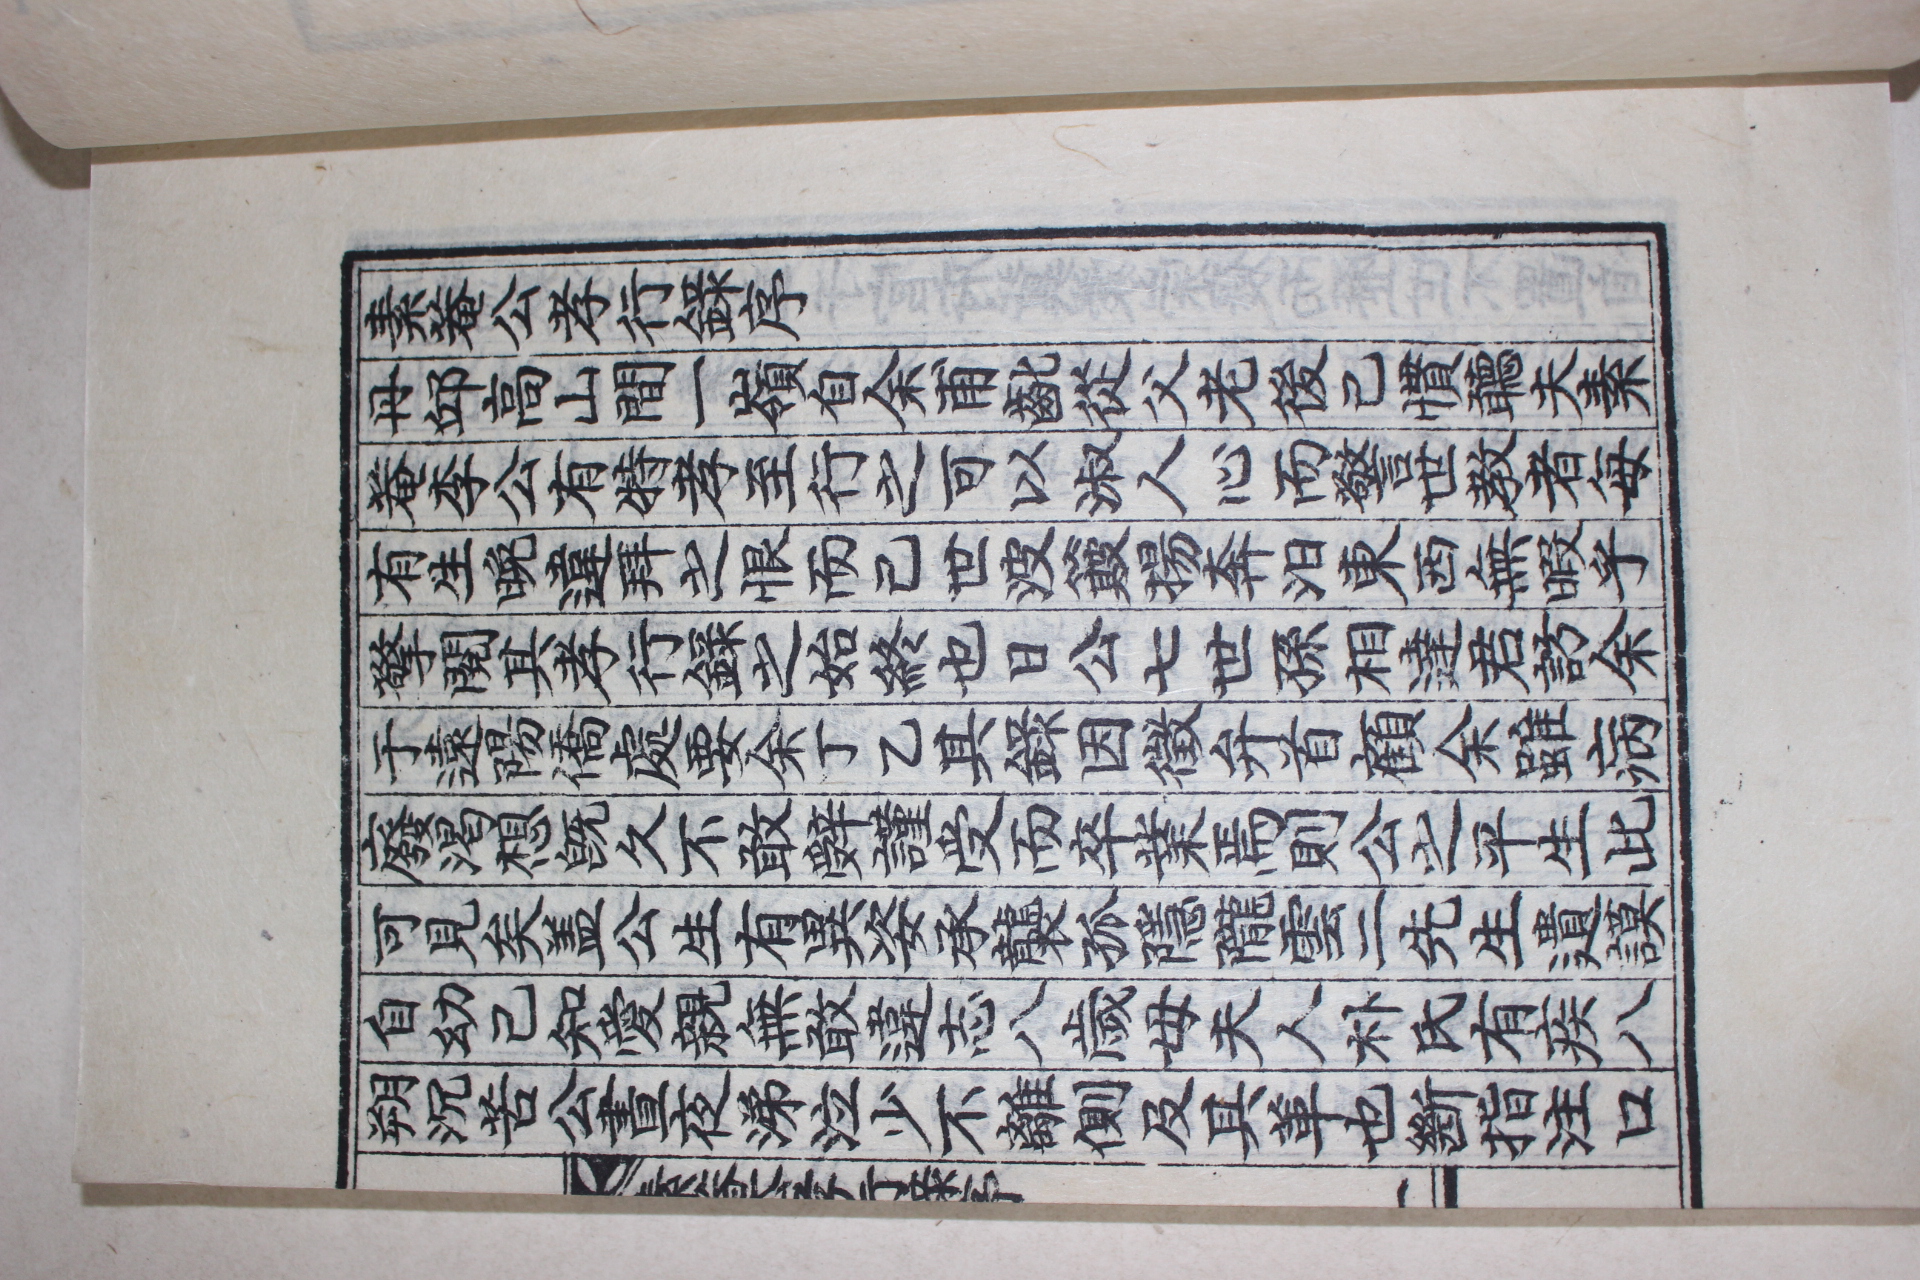 素菴公孝行錄序
丹邱高山間一嶺自余甫齔從父老後已慣聽夫素
菴李公有特孝至行之可以淑人心而警世敎者每
有生晩違拜之恨而已世波簸揚奔汨東西無暇乎
擎閱其孝行錄之始終也日公七世孫相達君訪余
于遠陽僑處要余丁乙其錄因徵弁首顧余雖病
廢渴想旣久不敢辭謹受而卒業焉則公之平生此
可見矣盖公生有異姿承襲孤隱隴雲二先生遺謨
自幼已知愛親無敢違志八歲母夫人朴氏有疾八
朔沉苦公晝夜涕泣少不離側及其革也斷指注口